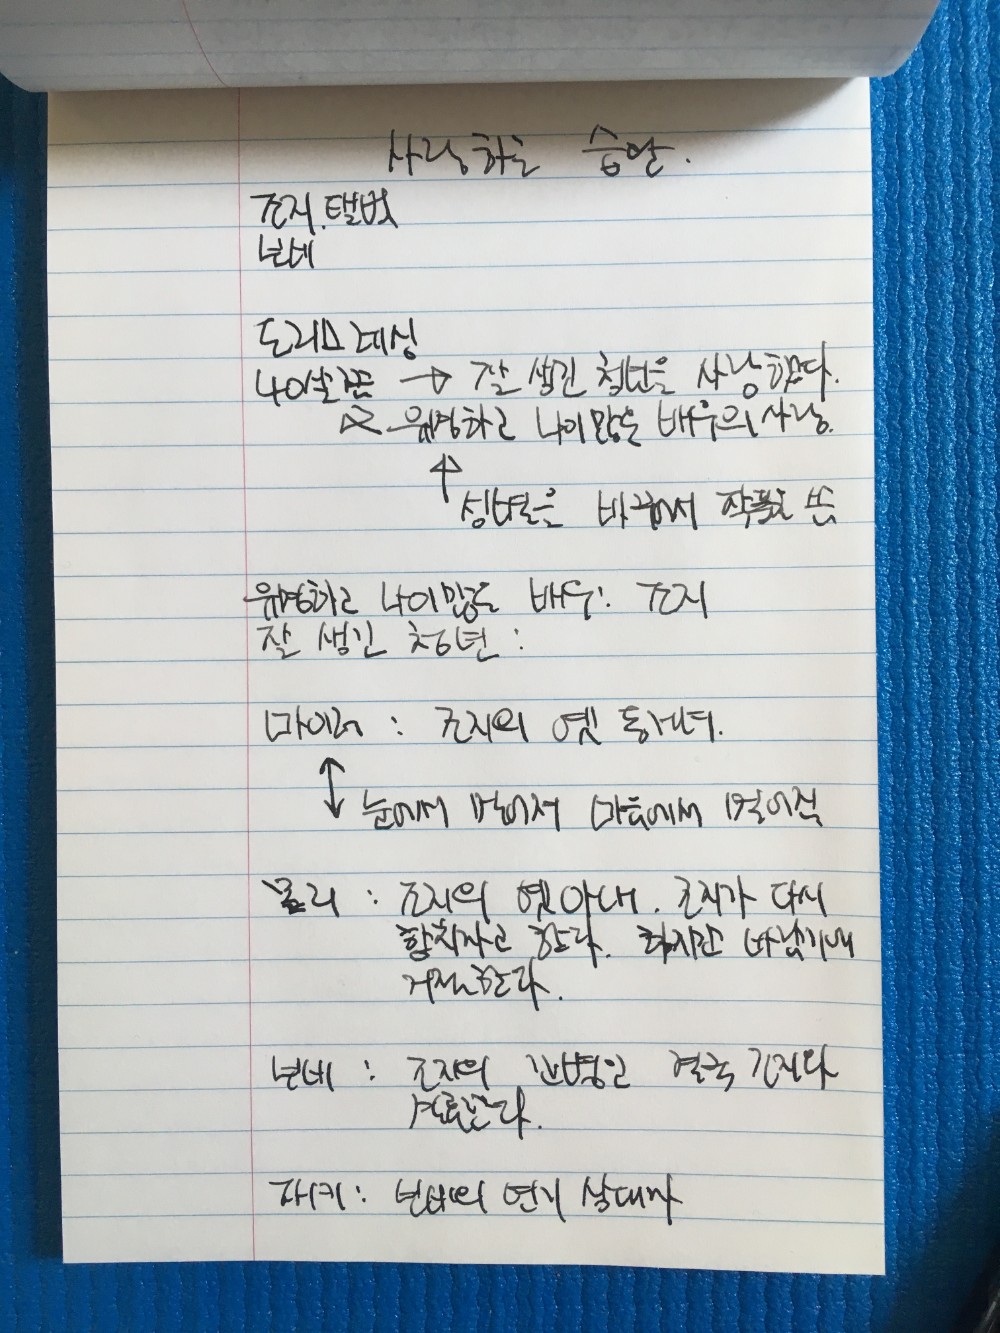 사랑하는 습관.
조지.탤벗
보비
도리스 레싱
나이 → 잘 생긴 청년을 사랑했다.
유명하고 나이많은 배우의 사랑.
↑
성별을 바꿔서 작품을 씀
유명하고 나이많은 배우: 조지
잘 생긴 청년:
마이러: 조지의 옛 동거녀.
↕ 눈에서 멀어져 마음에서 멀어짐
몰리: 조지의 옛 아내. 조지가 다시
합치자고 한다. 하지만 바람기에
거절한다.
보비: 조지의 간병인 결국 조지와
결혼한다.
재키: 보비의 연기 상대자